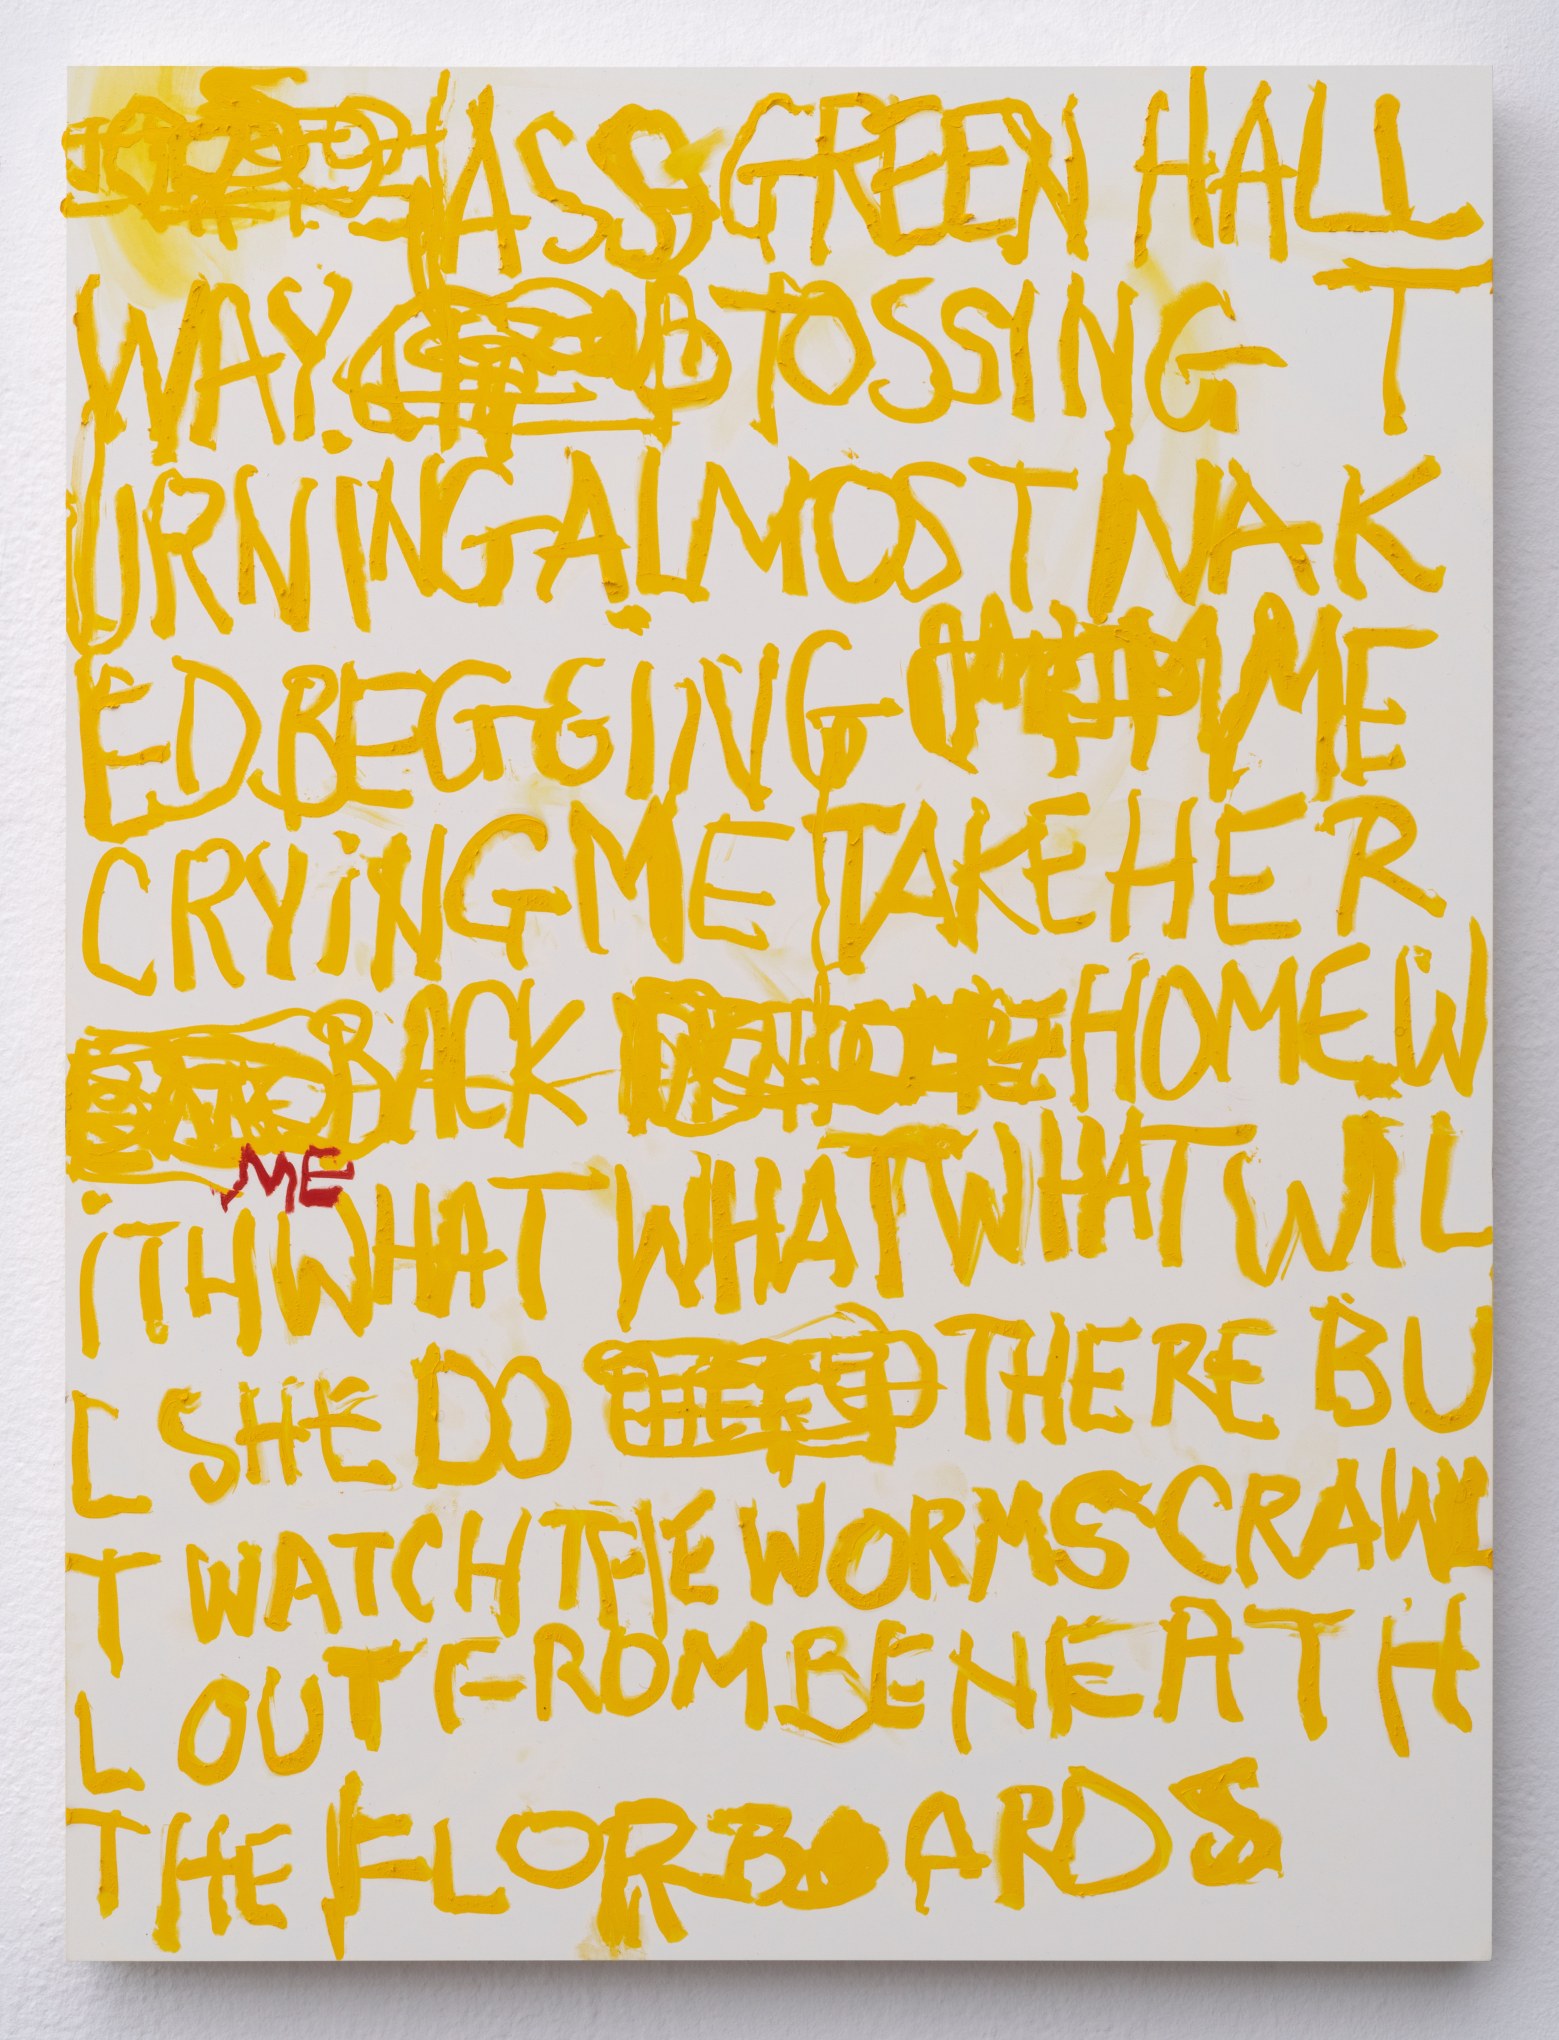 ASS GREEN HALL
WAY. TOSSING T
URNING ALMOST NAK
ED BEGGING ME
CRYING ME TAKE HER
BACK HOME W
ME
iTH WHAT WHAT WHAT WIL
L SHE DO THERE BU
T WATCH THE WORMS CRAWL
L OUT FROM BENEATH
THE FLORBOARDS